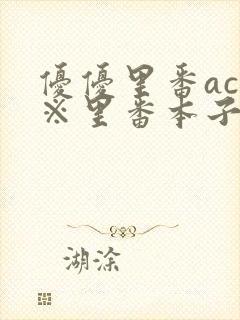 優優里番ac
※里番本子
湖涂